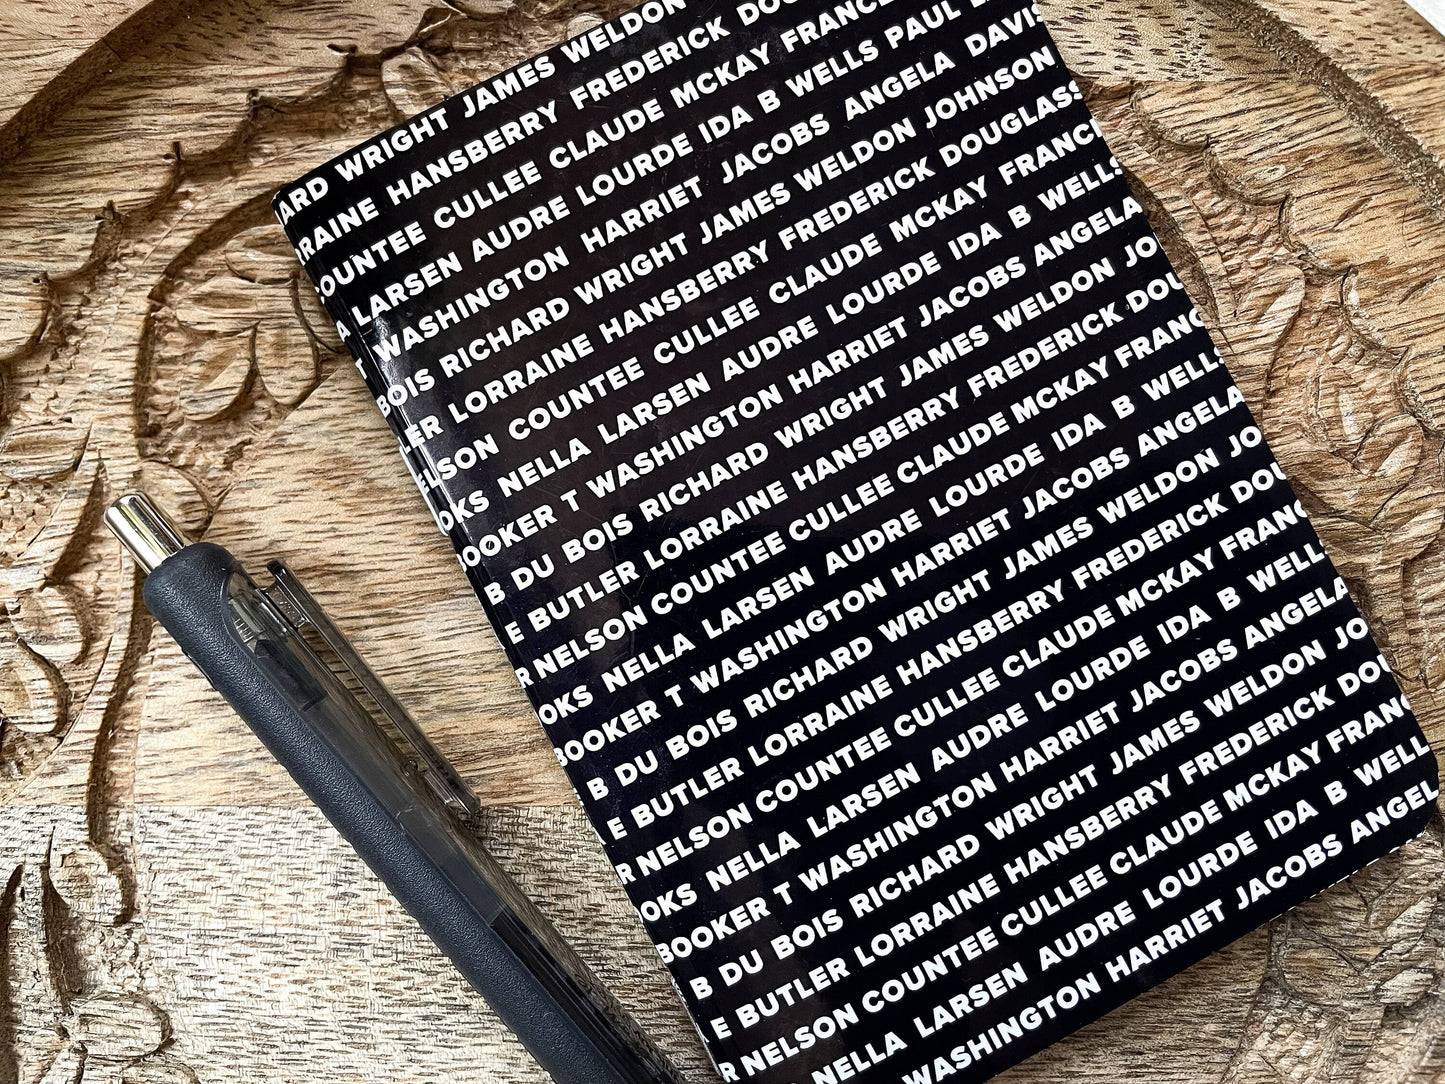 ARD WRIGHT JAMES WELDON
RAINE HANSBERRY FREDERICK DOU
OUNTEE CULLEE CLAUDE MCKAY FRANCE
A LARSEN AUDRE LOURDE IDA B WELLS PAUL
T WASHINGTON HARRIET JACOBS ANGELA DAVIS
BOIS RICHARD WRIGHT JAMES WELDON JOHNSON
LER LORRAINE HANSBERRY FREDERICK DOUGLASS
ELSON COUNTEE CULLEE CLAUDE MCKAY FRANC
OKS NELLA LARSEN AUDRE LOURDE IDA B WELLS
BOOKER T WASHINGTON HARRIET JACOBS ANGELA
B DU BOIS RICHARD WRIGHT JAMES WELDON JO
E BUTLER LORRAINE HANSBERRY FREDERICK DOU
R NELSON COUNTEE CULLEE CLAUDE MCKAY FRANC
OKS NELLA LARSEN AUDRE LOURDE IDA B WELLS
BOOKER T WASHINGTON HARRIET JACOBS ANGELA
B DU BOIS RICHARD WRIGHT JAMES WELDON JO
E BUTLER LORRAINE HANSBERRY FREDERICK DOU
R NELSON COUNTEE CULLEE CLAUDE MCKAY FRANC
OKS NELLA LARSEN AUDRE LOURDE IDA B WELL
BOOKER T WASHINGTON HARRIET JACOBS ANGELA
B DU BOIS RICHARD WRIGHT JAMES WELDON JO
E BUTLER LORRAINE HANSBERRY FREDERICK DOU
R NELSON COUNTEE CULLEE CLAUDE MCKAY FRANC
NELLA LARSEN AUDRE LOURDE IDA B WELL
WASHINGTON HARRIET JACOBS ANGEL